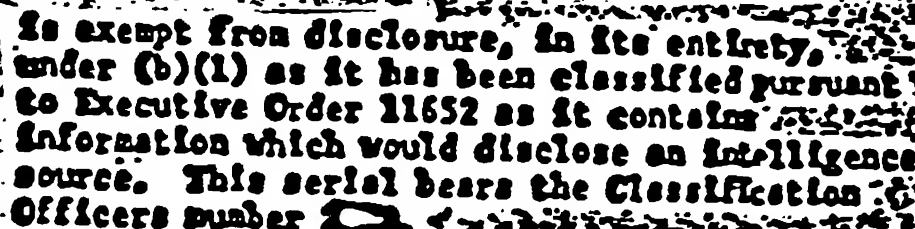 is exempt from disclosure, in its entirety,
under (b)(1) as it has been classified pursuant
to Executive Order 11652 as it contains
information which would disclose an intelligence
source. This serial bears the Classification
Officers number